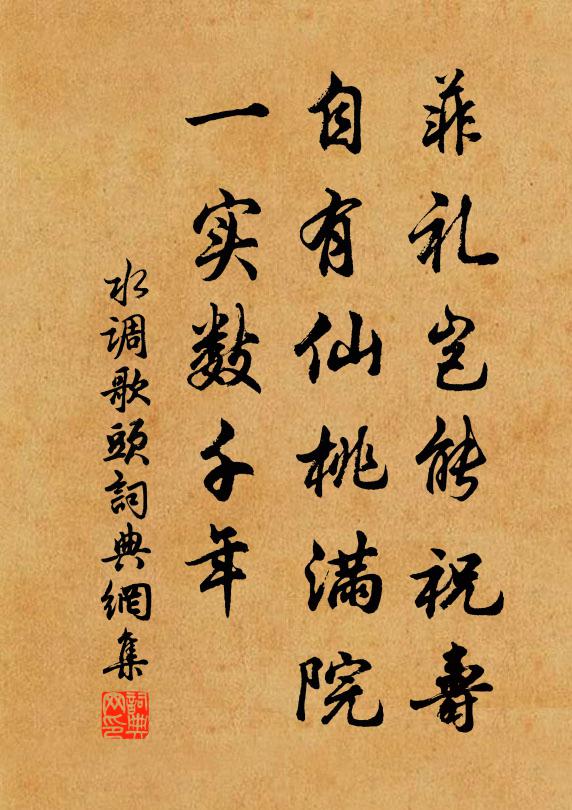 菲礼岂能祝寿
自有仙桃满院
一实数千年
水调歌頭詞典網集
詞典网印